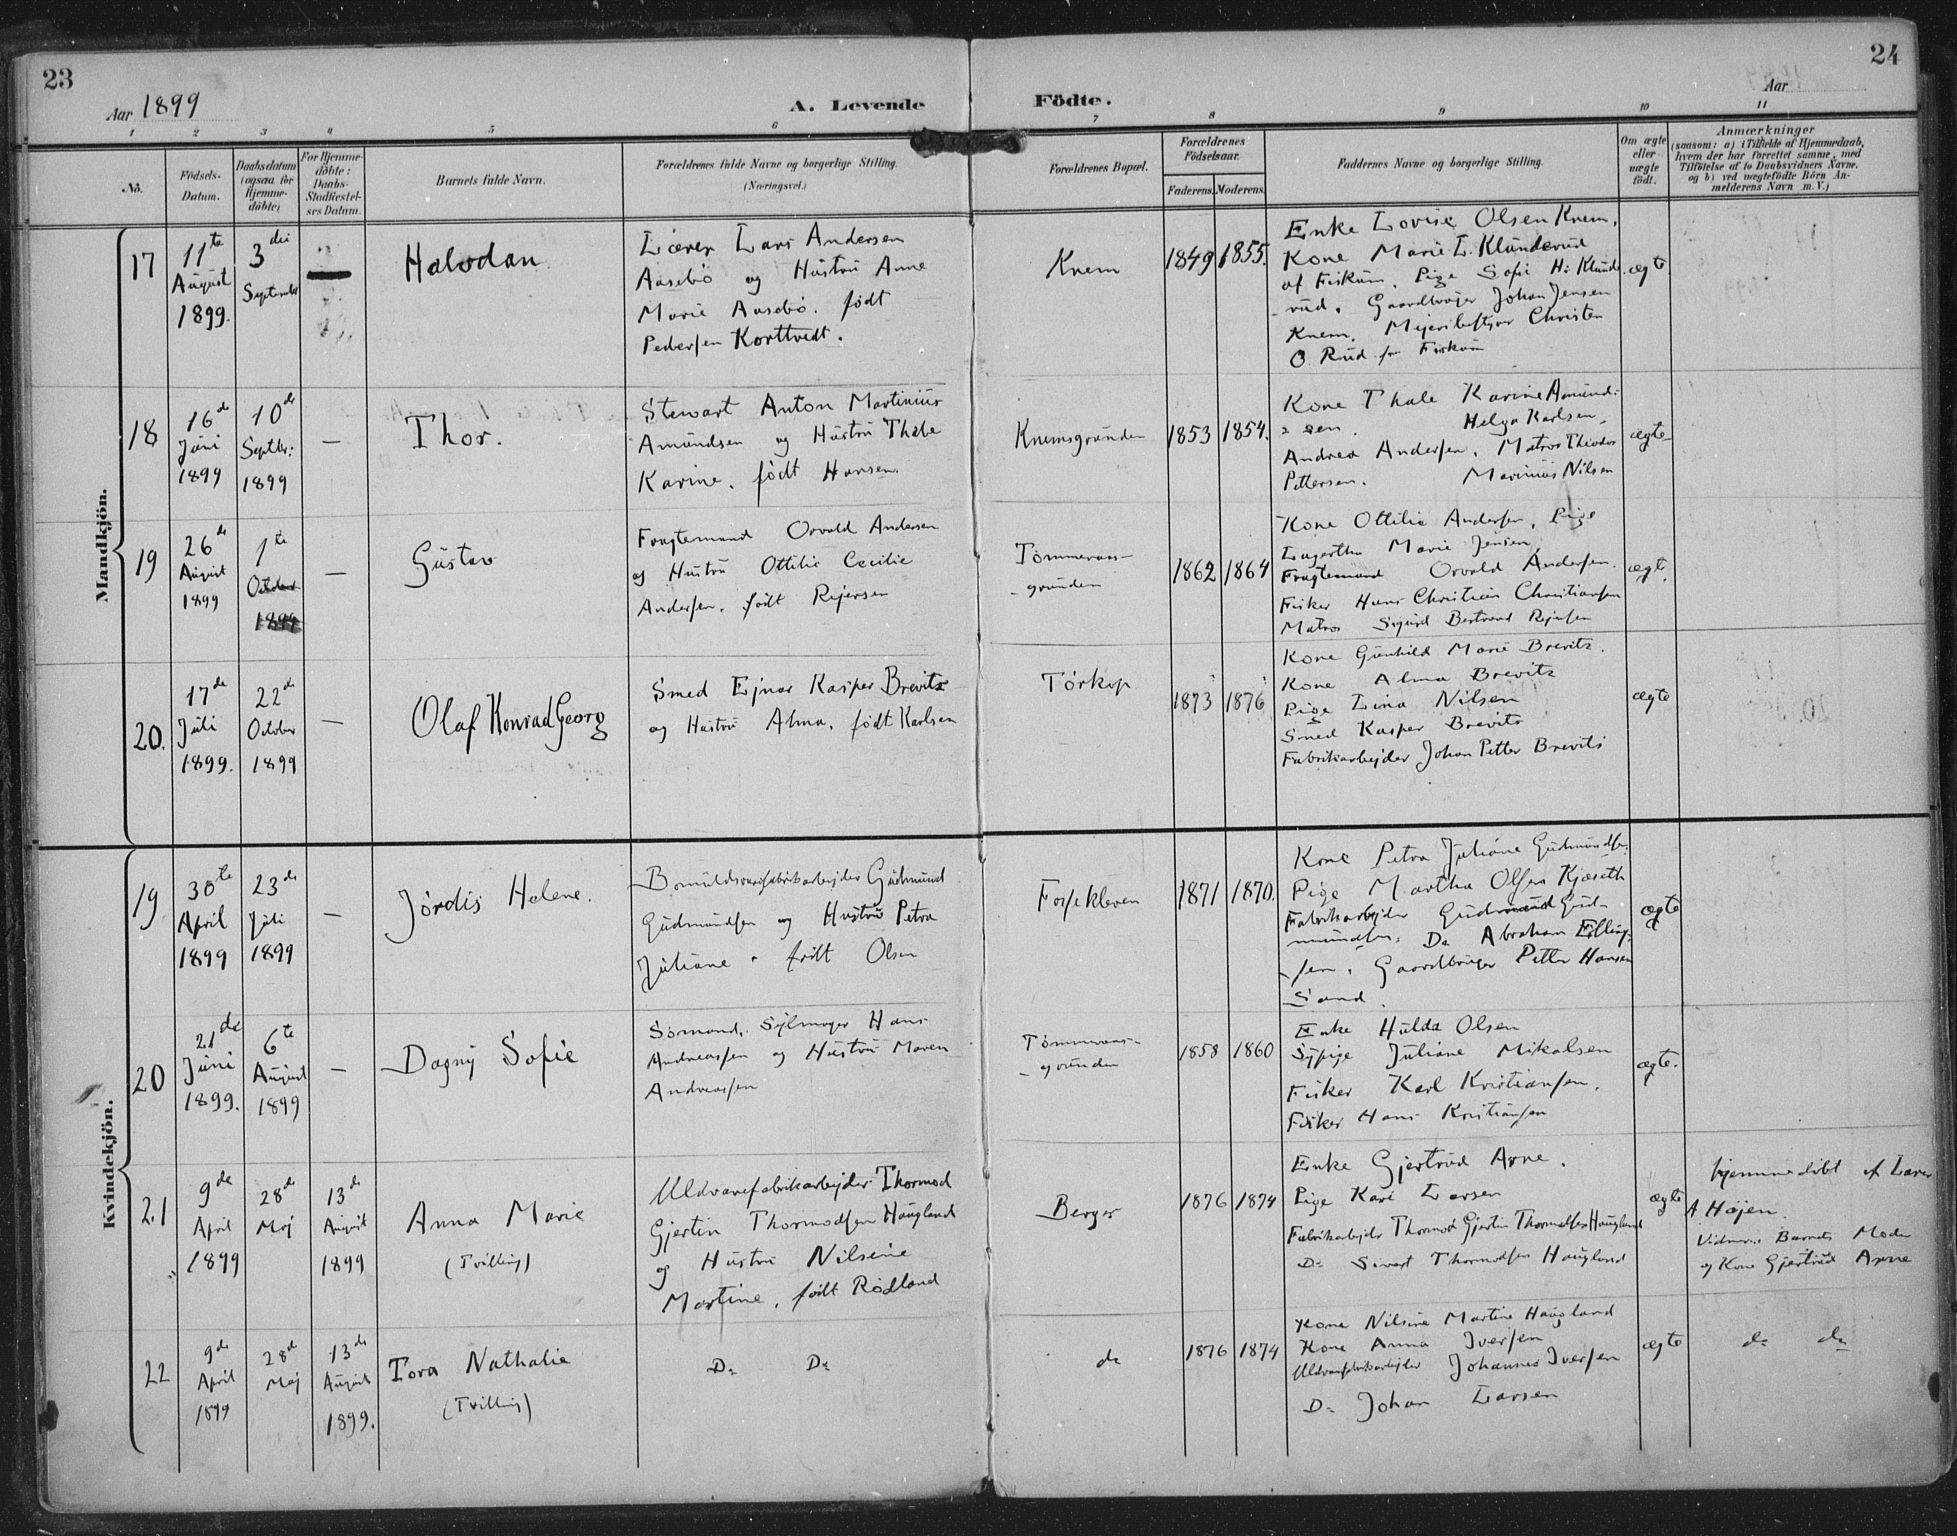 23
24
Aar 1899
A. Levende
Födte.
Aar
1
2
3
4
5
6
7
8
9
10
11
No.
Födsels-
Datum.
Daabsdatum
(ogsaa for
Hjemme-
döbte)
For Hjemme-
döbte:
Daabs-
Stadfæstel-
ses Datum.
Barnets fulde Navn.
Forældrenes fulde Navne og borgerlige Stilling.
(Næringsvei.)
Forældrenes Bopæl.
Forældrenes
Födselsaar.
Faderens.
Moderens.
Faddernes Navne og borgerlige Stilling.
Om ægte
eller
uægte
født.
Anmærkninger
(saasom: a) i Tilfælde af Hjemmedaab,
hvem der har forrettet samme, med
Tilföielse af to Daabsvidners Navne.
og b) ved uægtefödte Börn An-
melderens Navn m. V.)
Mandkjön.
17
11te
August
1899.
3die
September
Halvdan
Lærer Lars Andersen
Aasebö og Hustru Anne
Marie Aasebö. født
Pedersen Korttvedt.
Knem
1849
1855.
Enke Lovise Olsen Knem.
Kone Marie L. Klunderud
af Fiskum. Pige Sofie H. Klunde-
-rud. Gaardbruger Johan Jensen
Knem. Christen
O. Rud fra Fiskum
ægte
18
16de
Juni
1899
10de
Septbr:
1899
—
Thor.
Stewart Anton Martinius
Amundsen og Hustru Thale
Karine. født Hansen.
Knemsgrunden
1853
1854.
Kone Thale Karine Amund-
sen. Helga Karlsen
Andrea Andersen. Matros Theodor
Pettersen. Marinius Nilsen
ægte
19
26de
August
1899
1te
October
1899
—
Gustav
Fragtemand Orvald Andersen
og Hustru Ottilie Cecilie
Andersen. født Rejersen
Tömmeraas-
-grunden
1862
1864
Kone Ottilie Andersen. Pige
Lagertha Marie Jensen
Fragtemand Orvald Andersen.
Fisker Hans Christian Christiansen
Matros Sigurd Bertrand Rejersen
ægte.
20.
17de
Juli
1899.
22de
October
1899
—
Olaf Konrad Georg
Smed Ejnar Kasper Brevitz
og Hustru Alma, født Karlsen
Törkop
1873
1876
Kone Gunhild Marie Brevitz.
Kone Alma Brevitz
Pige Lina Nilsen
Smed Kasper Brevitz
Fabrikarbejder Johan Petter Brevitz
ægte
Kvindekjön.
19
30te
April
1899
23de
Juli
1899
—
Jördis Helene.
Bomuldsvarefabrikarbejder Gudmund
Gudmundsen og Hustru Petra
Juliane. født Olsen
Fossekleven
1871
1870.
Kone Petra Juliane Gudmundsen.
Pige Martha Olsen Kjæseth
Fabrikarbejder Gudmund Gud-
mundsen. Do Abraham Elling-
sen. Gaardbruger Petter Hansen
Sand.
ægte
20
21de
Juni
1899.
6te
August
1899
—
Dagny Sofie
Sömand, Sejlmager Hans
Andreassen og Hustru Maren
Andreassen
Tömmeraas-
-grunden
1858
1860
Enke Hulda Olsen
Sypige Juliane Mikalsen
Fisker Karl Kristiansen.
Fisker Hans Kristiansen
ægte.
21
9de
April
1899
28de
Maj
13de
August
1899
Anna Marie
(Tvilling)
Uldvarefabrikarbejder Thormod
Gjertin Thormodsen Haugland
og Hustru Nilsine
Martine. født Rödland
Berger
1876
1874
Enke Gjertrud Arne.
Pige Kari Larsen
Fabrikarbejder Thormod Gjertin Thormodsen Haugland
Do Sivert Thormodsen Haugland
ægte
hjemmedöbt af Lærer
A Höjen.
Vidner: Barnets Moder
og Kone Gjertrud Arne
22
9de
April
1899
28de
Maj
13de
August
1899.
Tora Nathalie
(Tvilling)
Do Do
do
1876
1874
Kone Nilsine Martine Haugland
Kone Anna Iversen
Uldvarefabrikarbejder Johannes Iversen
Do Johan Larsen
ægte
do do